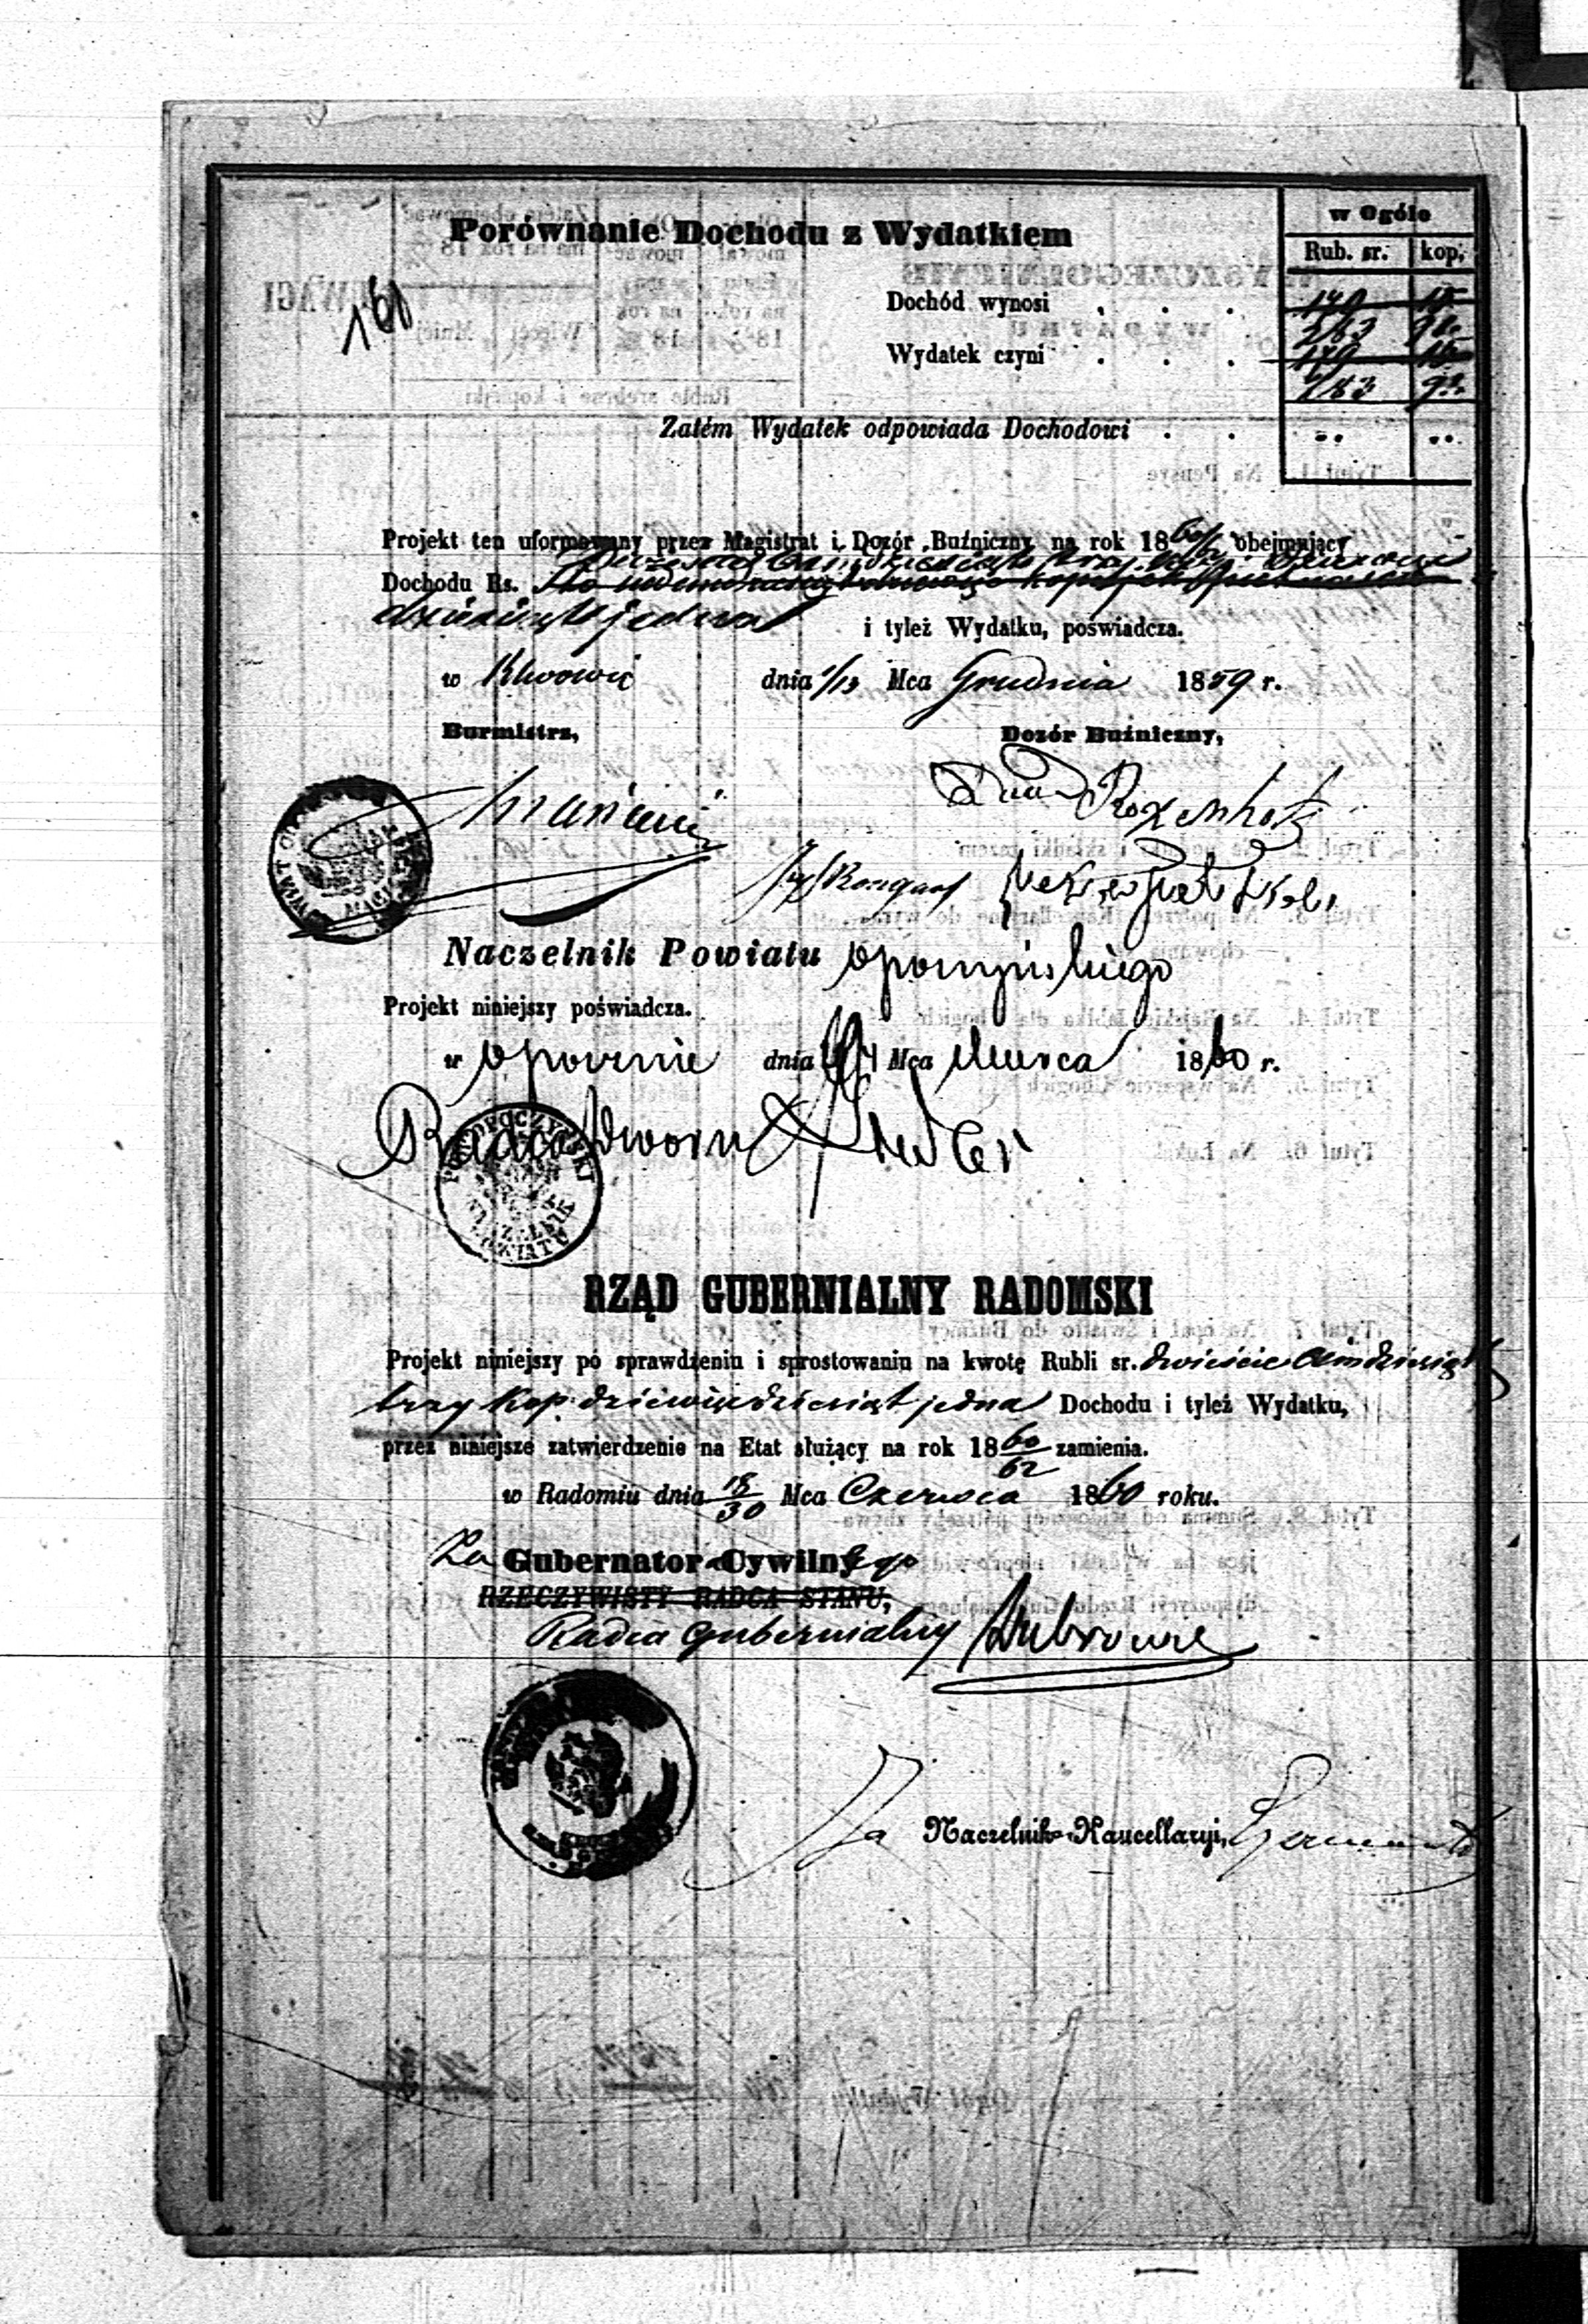 160
Porównanie Dochodu z Wydatkiem
w Ogóle
Rub. sr. kop.
Dochód wynosi . . . 149 15
283 91
Wydatek czyni . . . 149 15
283 91
Zatém Wydatek odpowiada Dochodowi . .
Projekt ten uformowany przez Magistrat i Dozór Buźniczny na rok 1860/62 obejmujący
Dwieście Ośmdziesiąt trzy kop.
Dochodu Rs. Sto
dziesiąt jedna i tyleż Wydatku, poświadcza.
w Klwowie dnia 1/13 Mca Grudnia 1859 r.
Burmistrz, Dozór Buźniczny,
Rozenholz
Naczelnik Powiatu Opoczyńskiego
Projekt niniejszy poświadcza.
w Opocznie dnia Mca Marca 1860 r.
Radca Dworu
RZĄD GUBERNIALNY RADOMSKI
Projekt niniejszy po sprawdzeniu i sprostowaniu na kwotę Rubli sr. dwieście ośmdziesiąt
trzy kop. dziewięćdziesiąt jedna Dochodu i tyleż Wydatku,
przez niniejsze zatwierdzenie na Etat służący na rok 1860/62 zamienia.
w Radomiu dnia 18/30 Mca Czerwca 1860 roku.
Za Gubernatora Cywilnego
RZECZYWISTY RADCA STANU,
Radca Gubernialny
Za Naczelnik Kancellaryi,